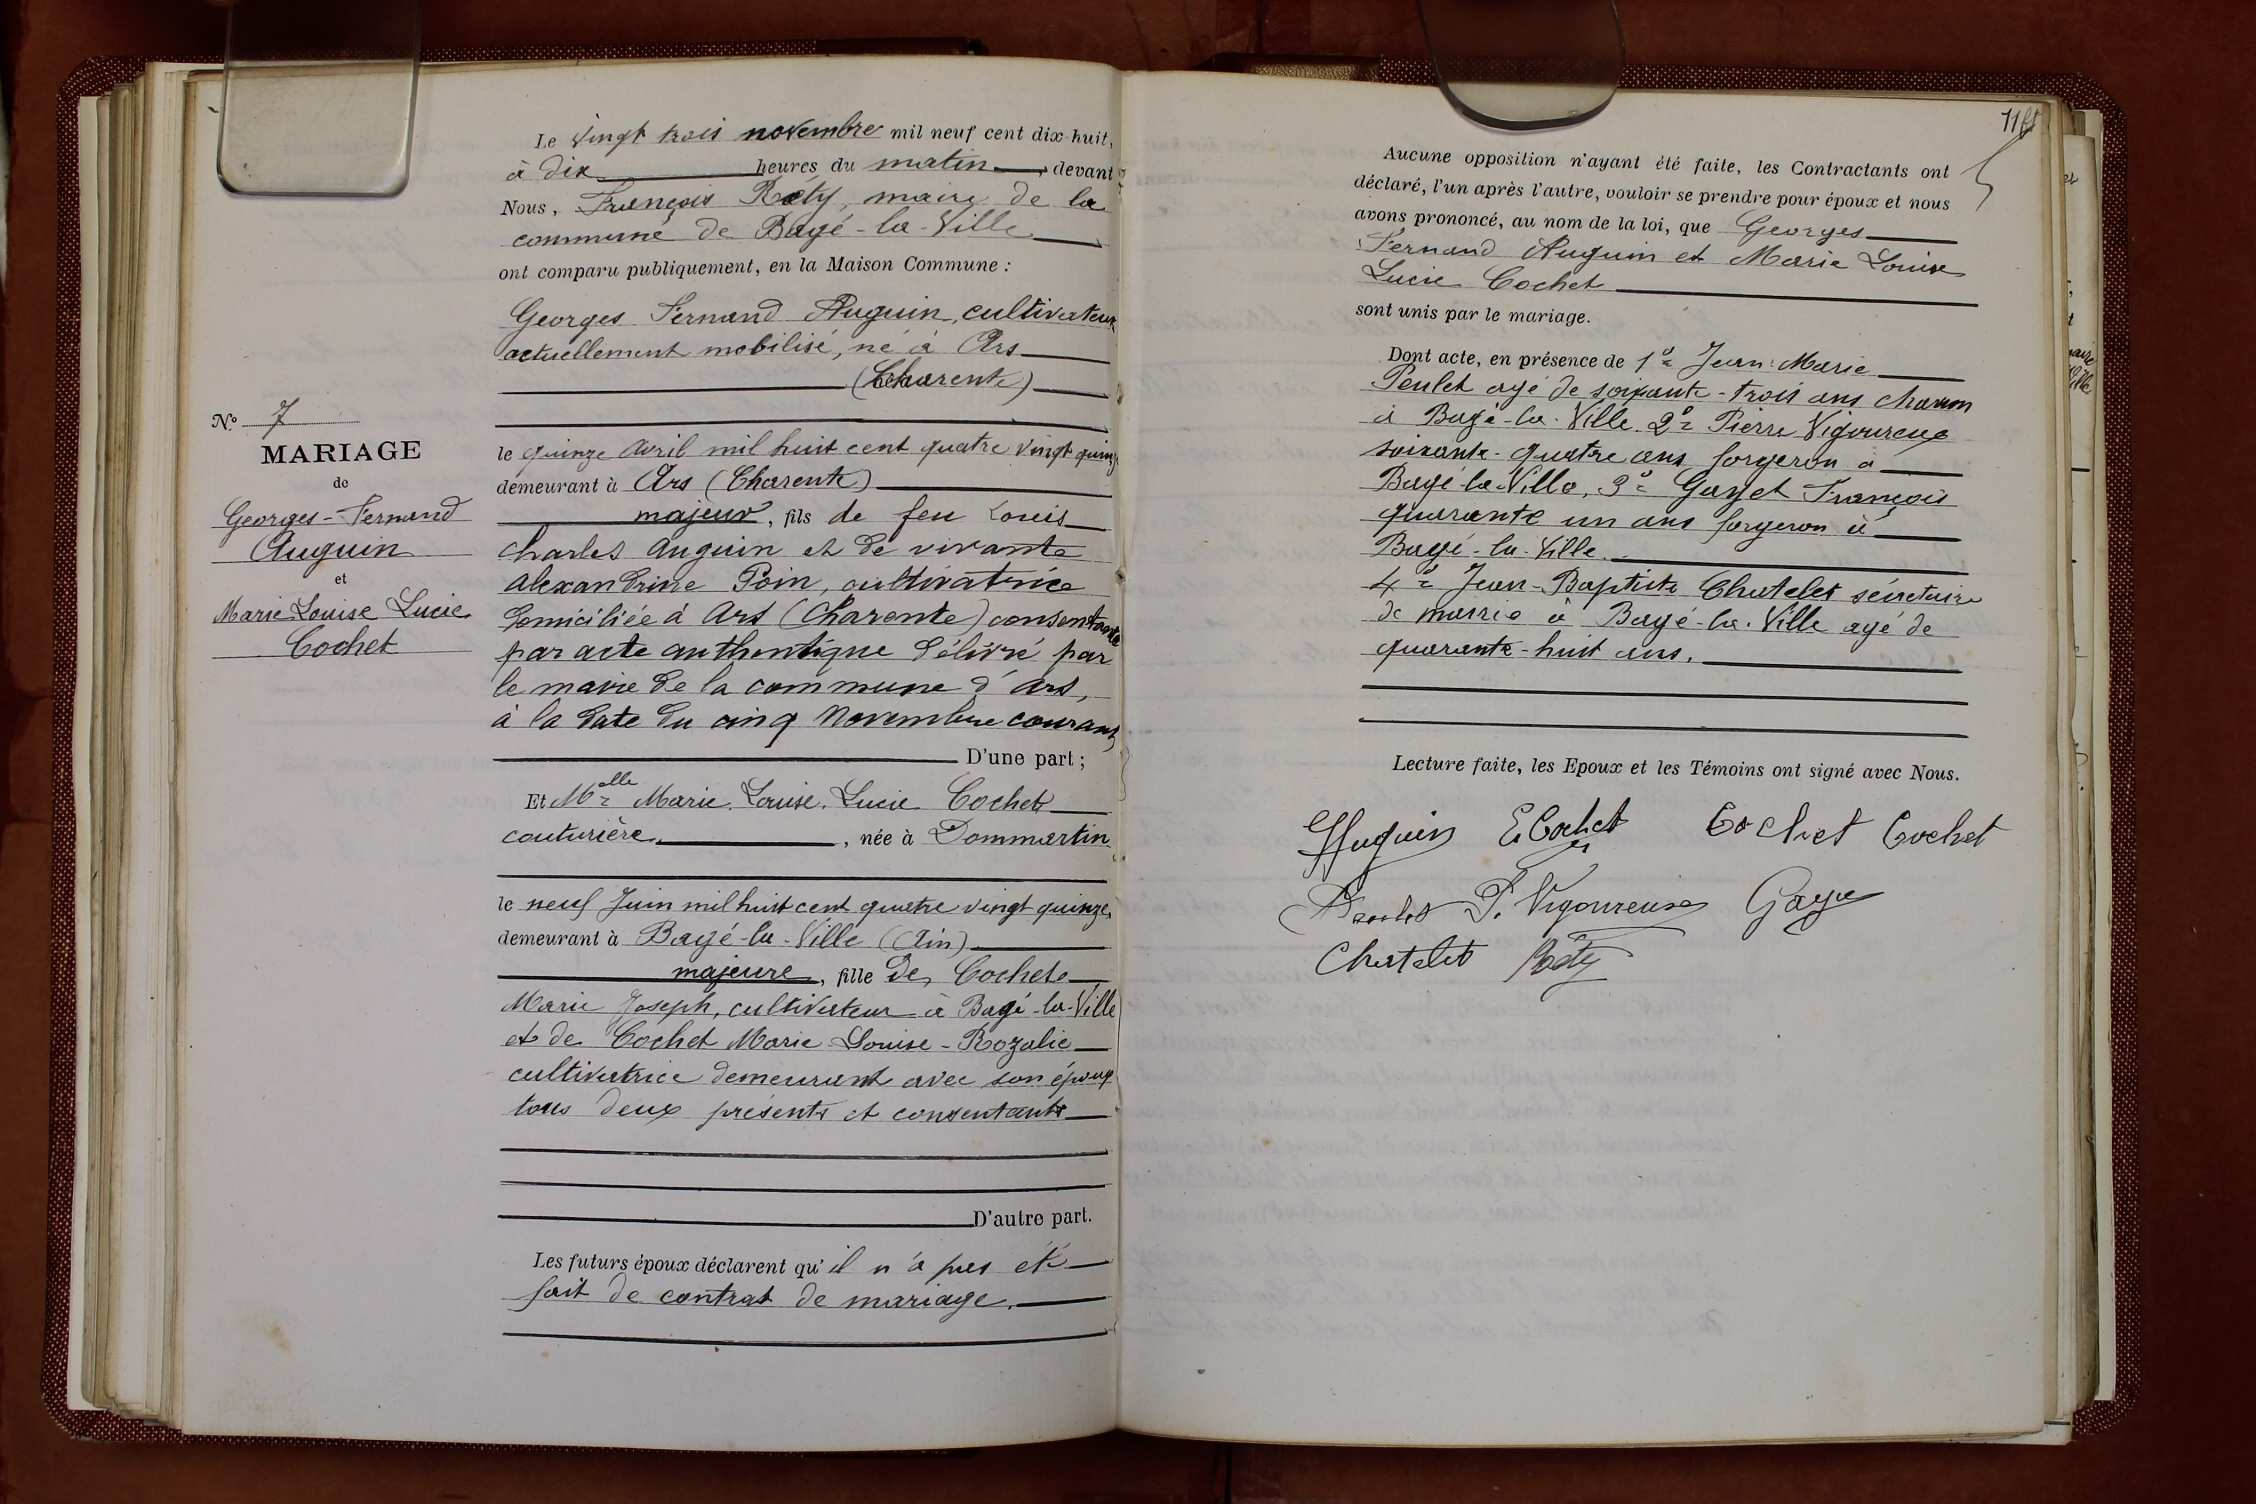 Le vingt trois novembre mil neuf cent dix-huit,
à dix heures du matin, devant
Nous, François Réty, maire de la
commune de Bagé-la-Ville
ont comparu publiquement, en la Maison Commune :
Georges Fernand Auguin, cultivateur
actuellement mobilisé, né à Ars
(Charente)
N° 7
MARIAGE
de
Georges-Fernand
Auguin
et
Marie Louise Lucie
Cochet
le quinze avril mil huit cent quatre vingt quinze
demeurant à Ars (Charente)
majeur, fils de feu Louis
Charles Auguin et de vivante
Alexandrine Poin, cultivatrice
domiciliée à Ars (Charente) consentante
par acte authentique délivré par
le maire de la commune d'Ars,
à la date du cinq Novembre courant,
D'une part ;
Et Melle Marie Louise Lucie Cochet
couturière, née à Dommartin
le neuf Juin mil huit cent quatre vingt quinze,
demeurant à Bagé-la-Ville (Ain)
majeure, fille de Cochet
Marie Joseph, cultivateur à Bagé-la-Ville
et de Cochet Marie Louise-Rozalie
cultivatrice demeurant avec son époux
tous deux présents et consentants
D'autre part.
Les futurs époux déclarent qu'il n'a pas été
fait de contrat de mariage.
Aucune opposition n'ayant été faite, les Contractants ont
déclaré, l'un après l'autre, vouloir se prendre pour époux et nous
avons prononcé, au nom de la loi, que Georges
Fernand Auguin et Marie Louise
Lucie Cochet
sont unis par le mariage.
Dont acte, en présence de 1° Jean-Marie
Peulet agé de soixante-trois ans charron
à Bagé-la-Ville 2° Pierre Vigoureux
soixante-quatre ans forgeron à
Bagé-la-Ville, 3° Gayet François
quarante un ans forgeron à
Bagé-la-Ville.
4° Jean-Baptiste Chatelet sécretaire
de mairie à Bagé-la-Ville agé de
quarante-huit ans.
Lecture faite, les Epoux et les Témoins ont signé avec Nous.
Auguin Cochet Cochet Cochet
P. Vigoureux
Chatelet Réty